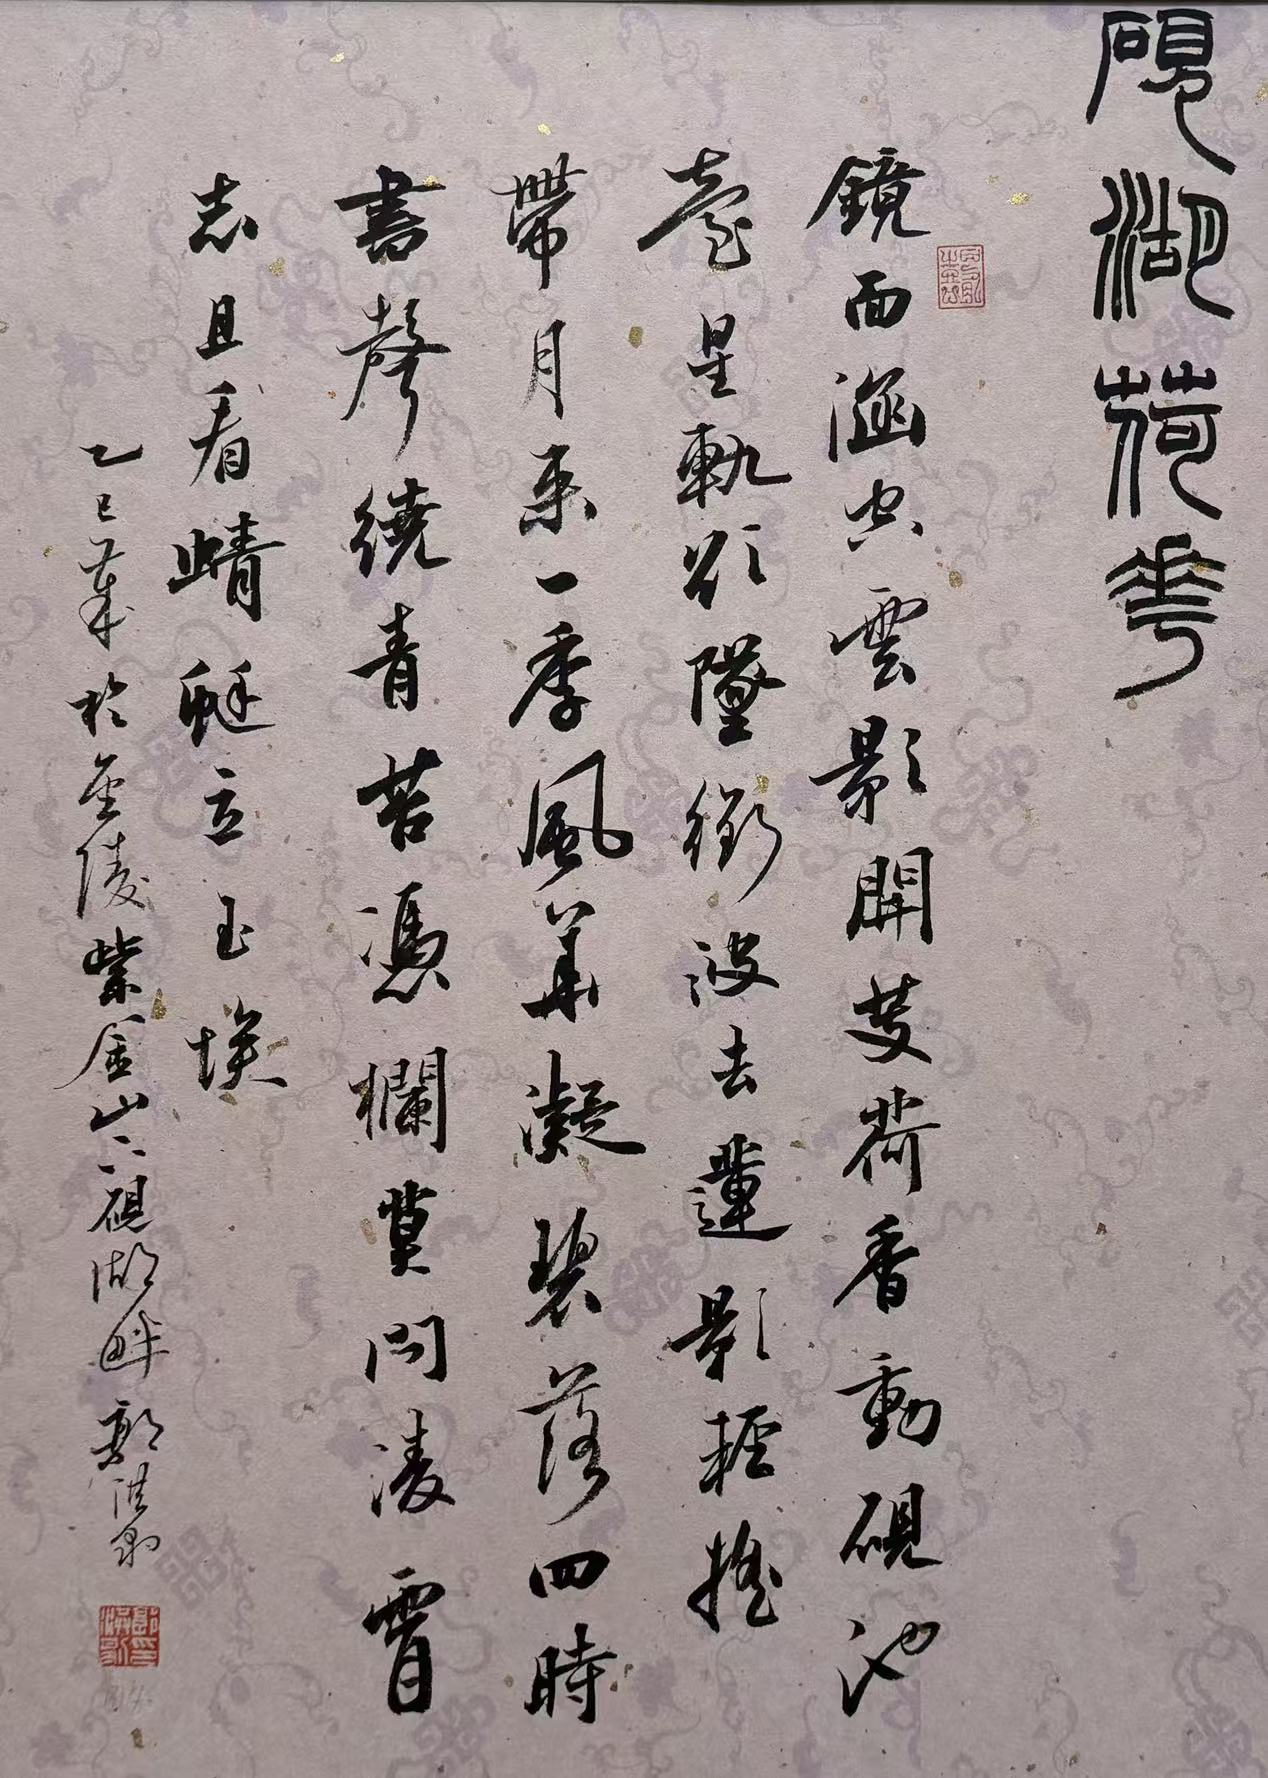 硯湖荷花
鏡面涵空雲影開芰荷香動硯池
臺星軌欲墜銜波去蓮影輕搖
帶月來一季風華凝碧落四時
書聲繞青苔憑欄莫問凌霄
志且看蜻蜓立玉埃
乙巳歲於金陵紫金山下硯湖畔